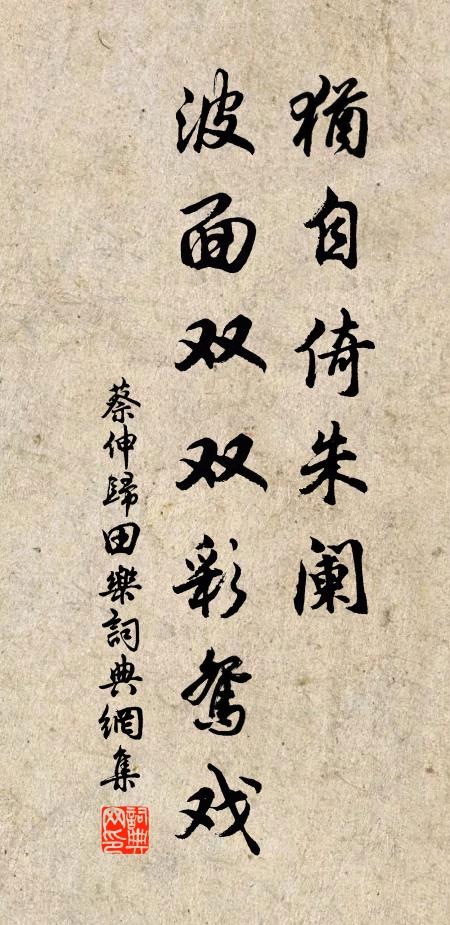 猶自倚朱阑
波面双双彩鸳戏
蔡伸歸田樂詞典網集
詞典网印